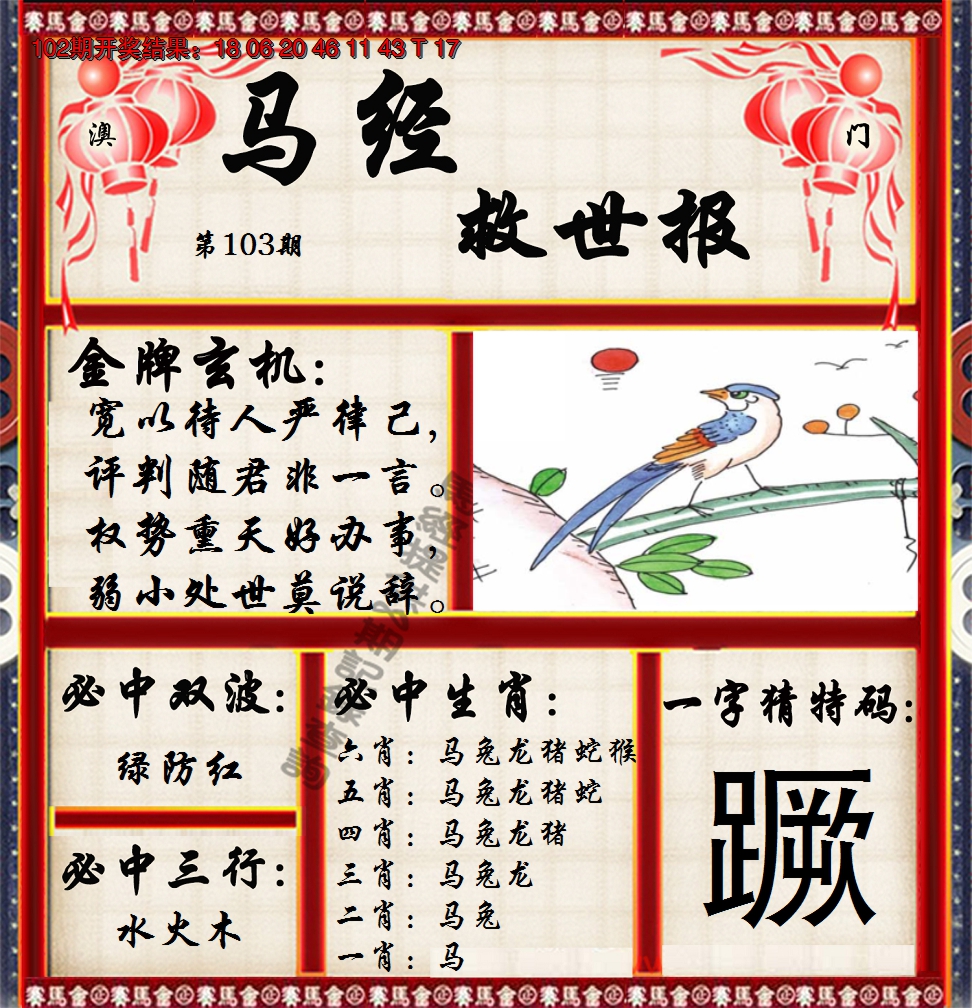 102期开奖结果：18 06 20 46 11 43 T 17
澳 门
马经
救世报
第103期
金牌玄机：
宽以待人严律己，
评判随君非一言。
权势熏天好办事，
弱小处世莫说辞。
必中双波：
绿防红
必中三行：
水火木
必中生肖：
六肖：马兔龙猪蛇猴
五肖：马兔龙猪蛇
四肖：马兔龙猪
三肖：马兔龙
二肖：马兔
一肖：马
一字猜特码：
蹶